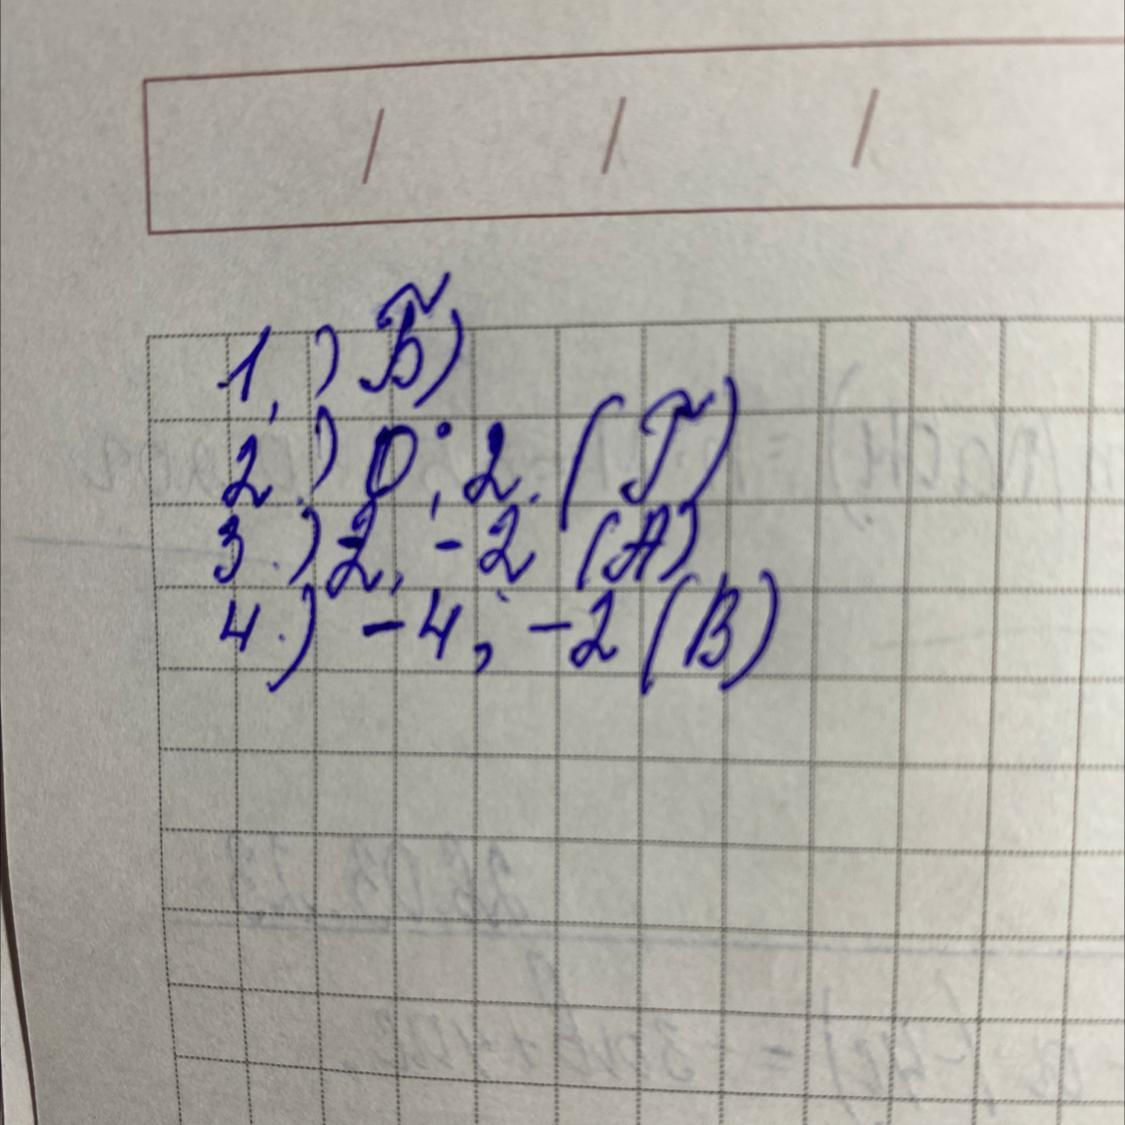 1.) Б)
2.) 0; 2. (Г)
3.) 2, -2 (А)
4.) -4; -2 (В)